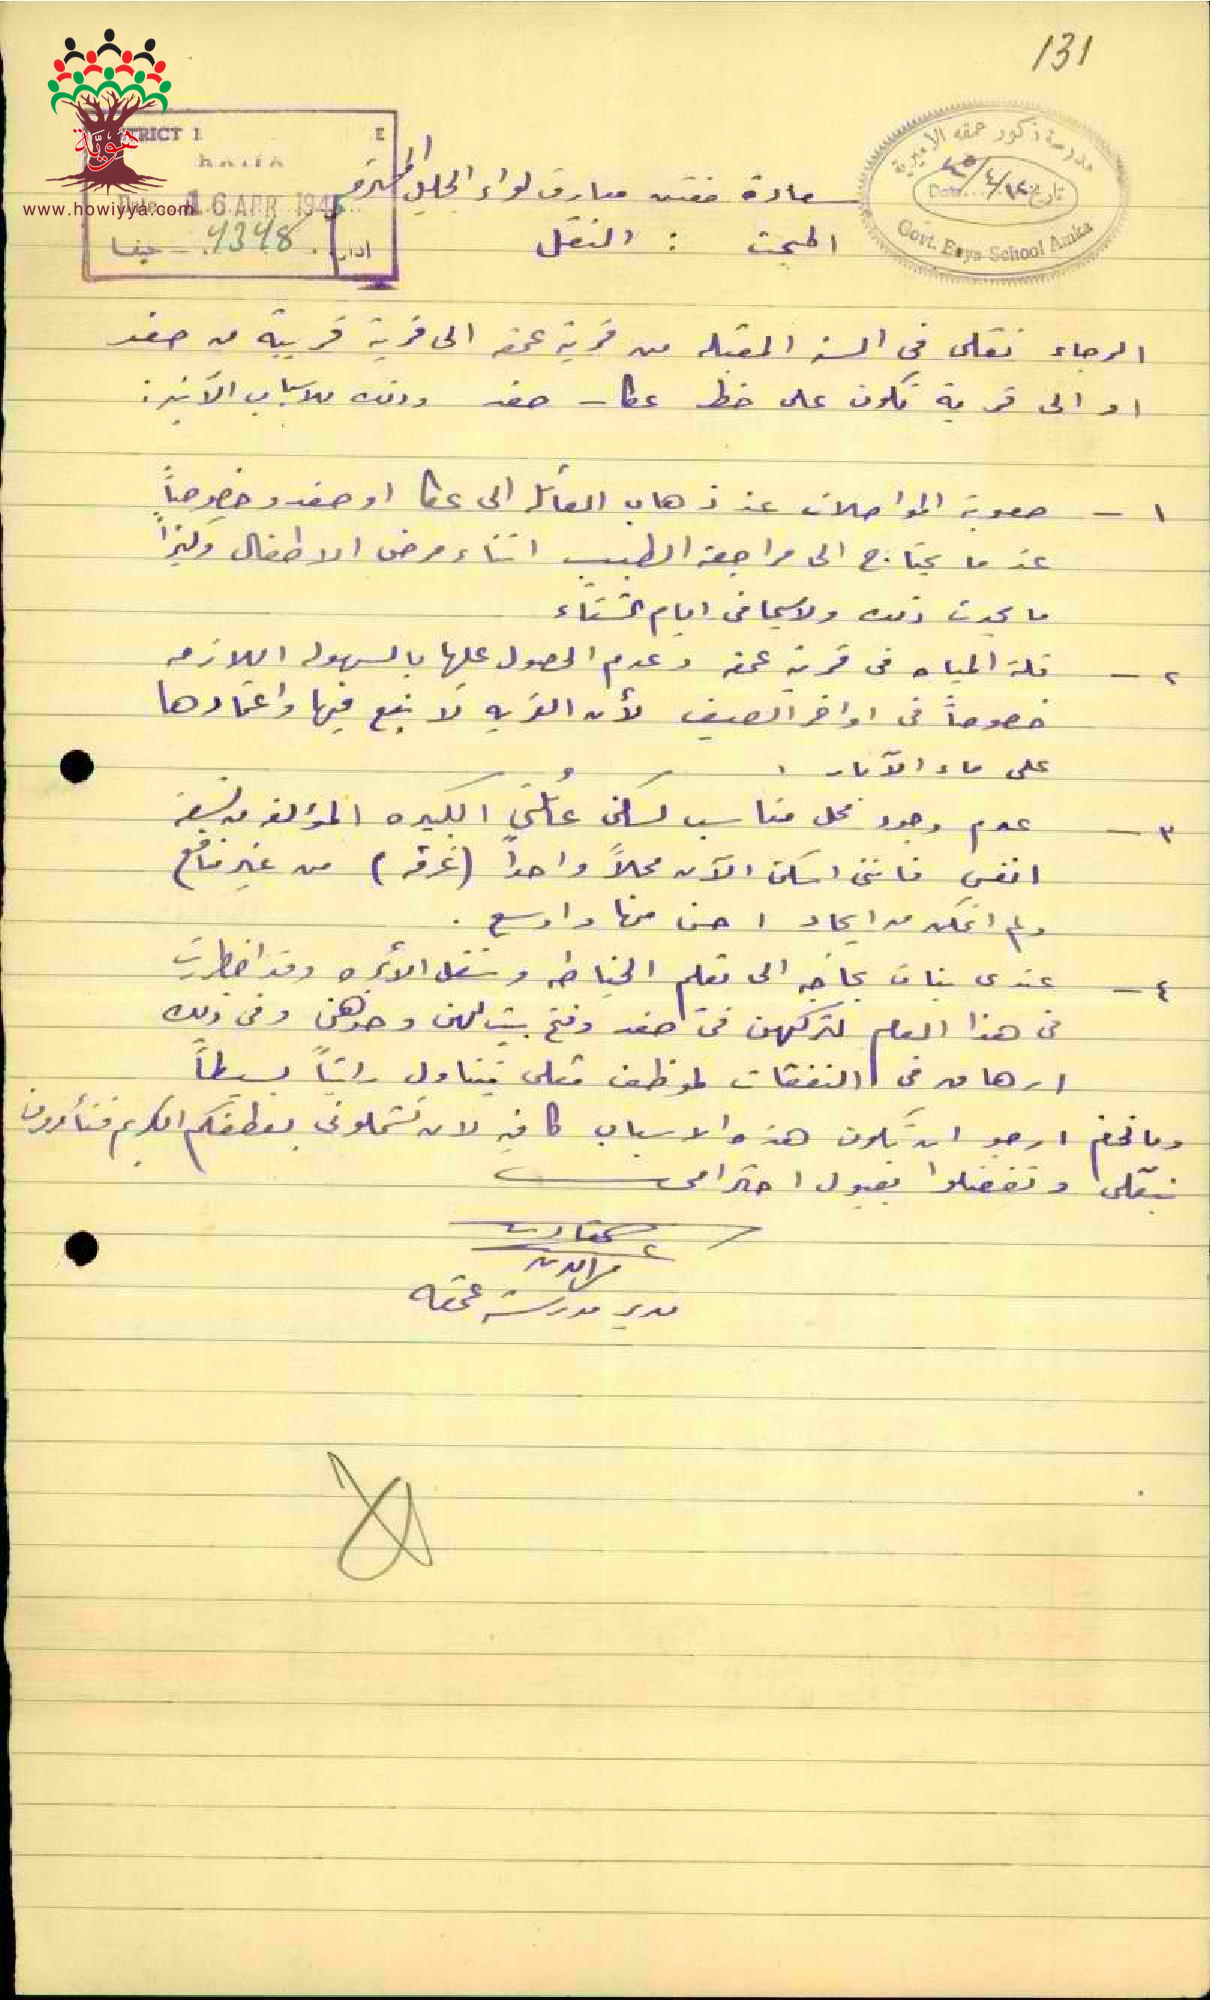 131
هويّة
www.howiyya.com
HAIFA
Date 16 APR 194
9348
حيفا
مدرسة ذكور عمقه الاميرية
Date
تاريخ
Govt. Boys School Amka
سعادة مفتش معارف لواء الجليل المحترم
المبحث : النقل
الرجاء نقلي في السنه المقبله من قرية عمقه الى قرية قريبة من صفد
او الى قرية تكون على خط عكا – صفد وذلك للاسباب الآتية :
١ – صعوبة المواصلات عند ذهاب العائلة الى عكا او صفد وخصوصاً
عند ما يحتاج الى مراجعة الطبيب اثناء مرض الاطفال وكثيراً
ما يحدث ذلك ولاسيما في ايام الشتاء
٢ – قلة المياه في قرية عمقه وعدم الحصول عليها بالسهوله اللازمه
خصوصاً في اواخر الصيف لأن القريه لا نبع فيها واعتمادها
على ماء الآبار .
٣ – عدم وجود محل مناسب لسكن عائلتي الكبيره المؤلفه من تسعة
انفس فانني اسكن الآن محلاً واحداً (غرفه) من غير منافع
ولم اتمكن من ايجاد احسن منها واوسع .
٤ – عندي بنات بحاجه الى تعلم الخياطه وشغل الأبره وقد اضطررت
في هذا العام لتركهن في صفد وفتح بيت لهن وحدهن وفي ذلك
ارهاق في النفقات لموظف مثلي يتناول راتباً بسيطاً
وبالختام ارجو ان تكون هذه الاسباب كافيه لان تشملوني بعطفكم الكريم فتأمرون
بنقلي وتفضلوا بقبول احترامي
مدير مدرسة عمقه
لا